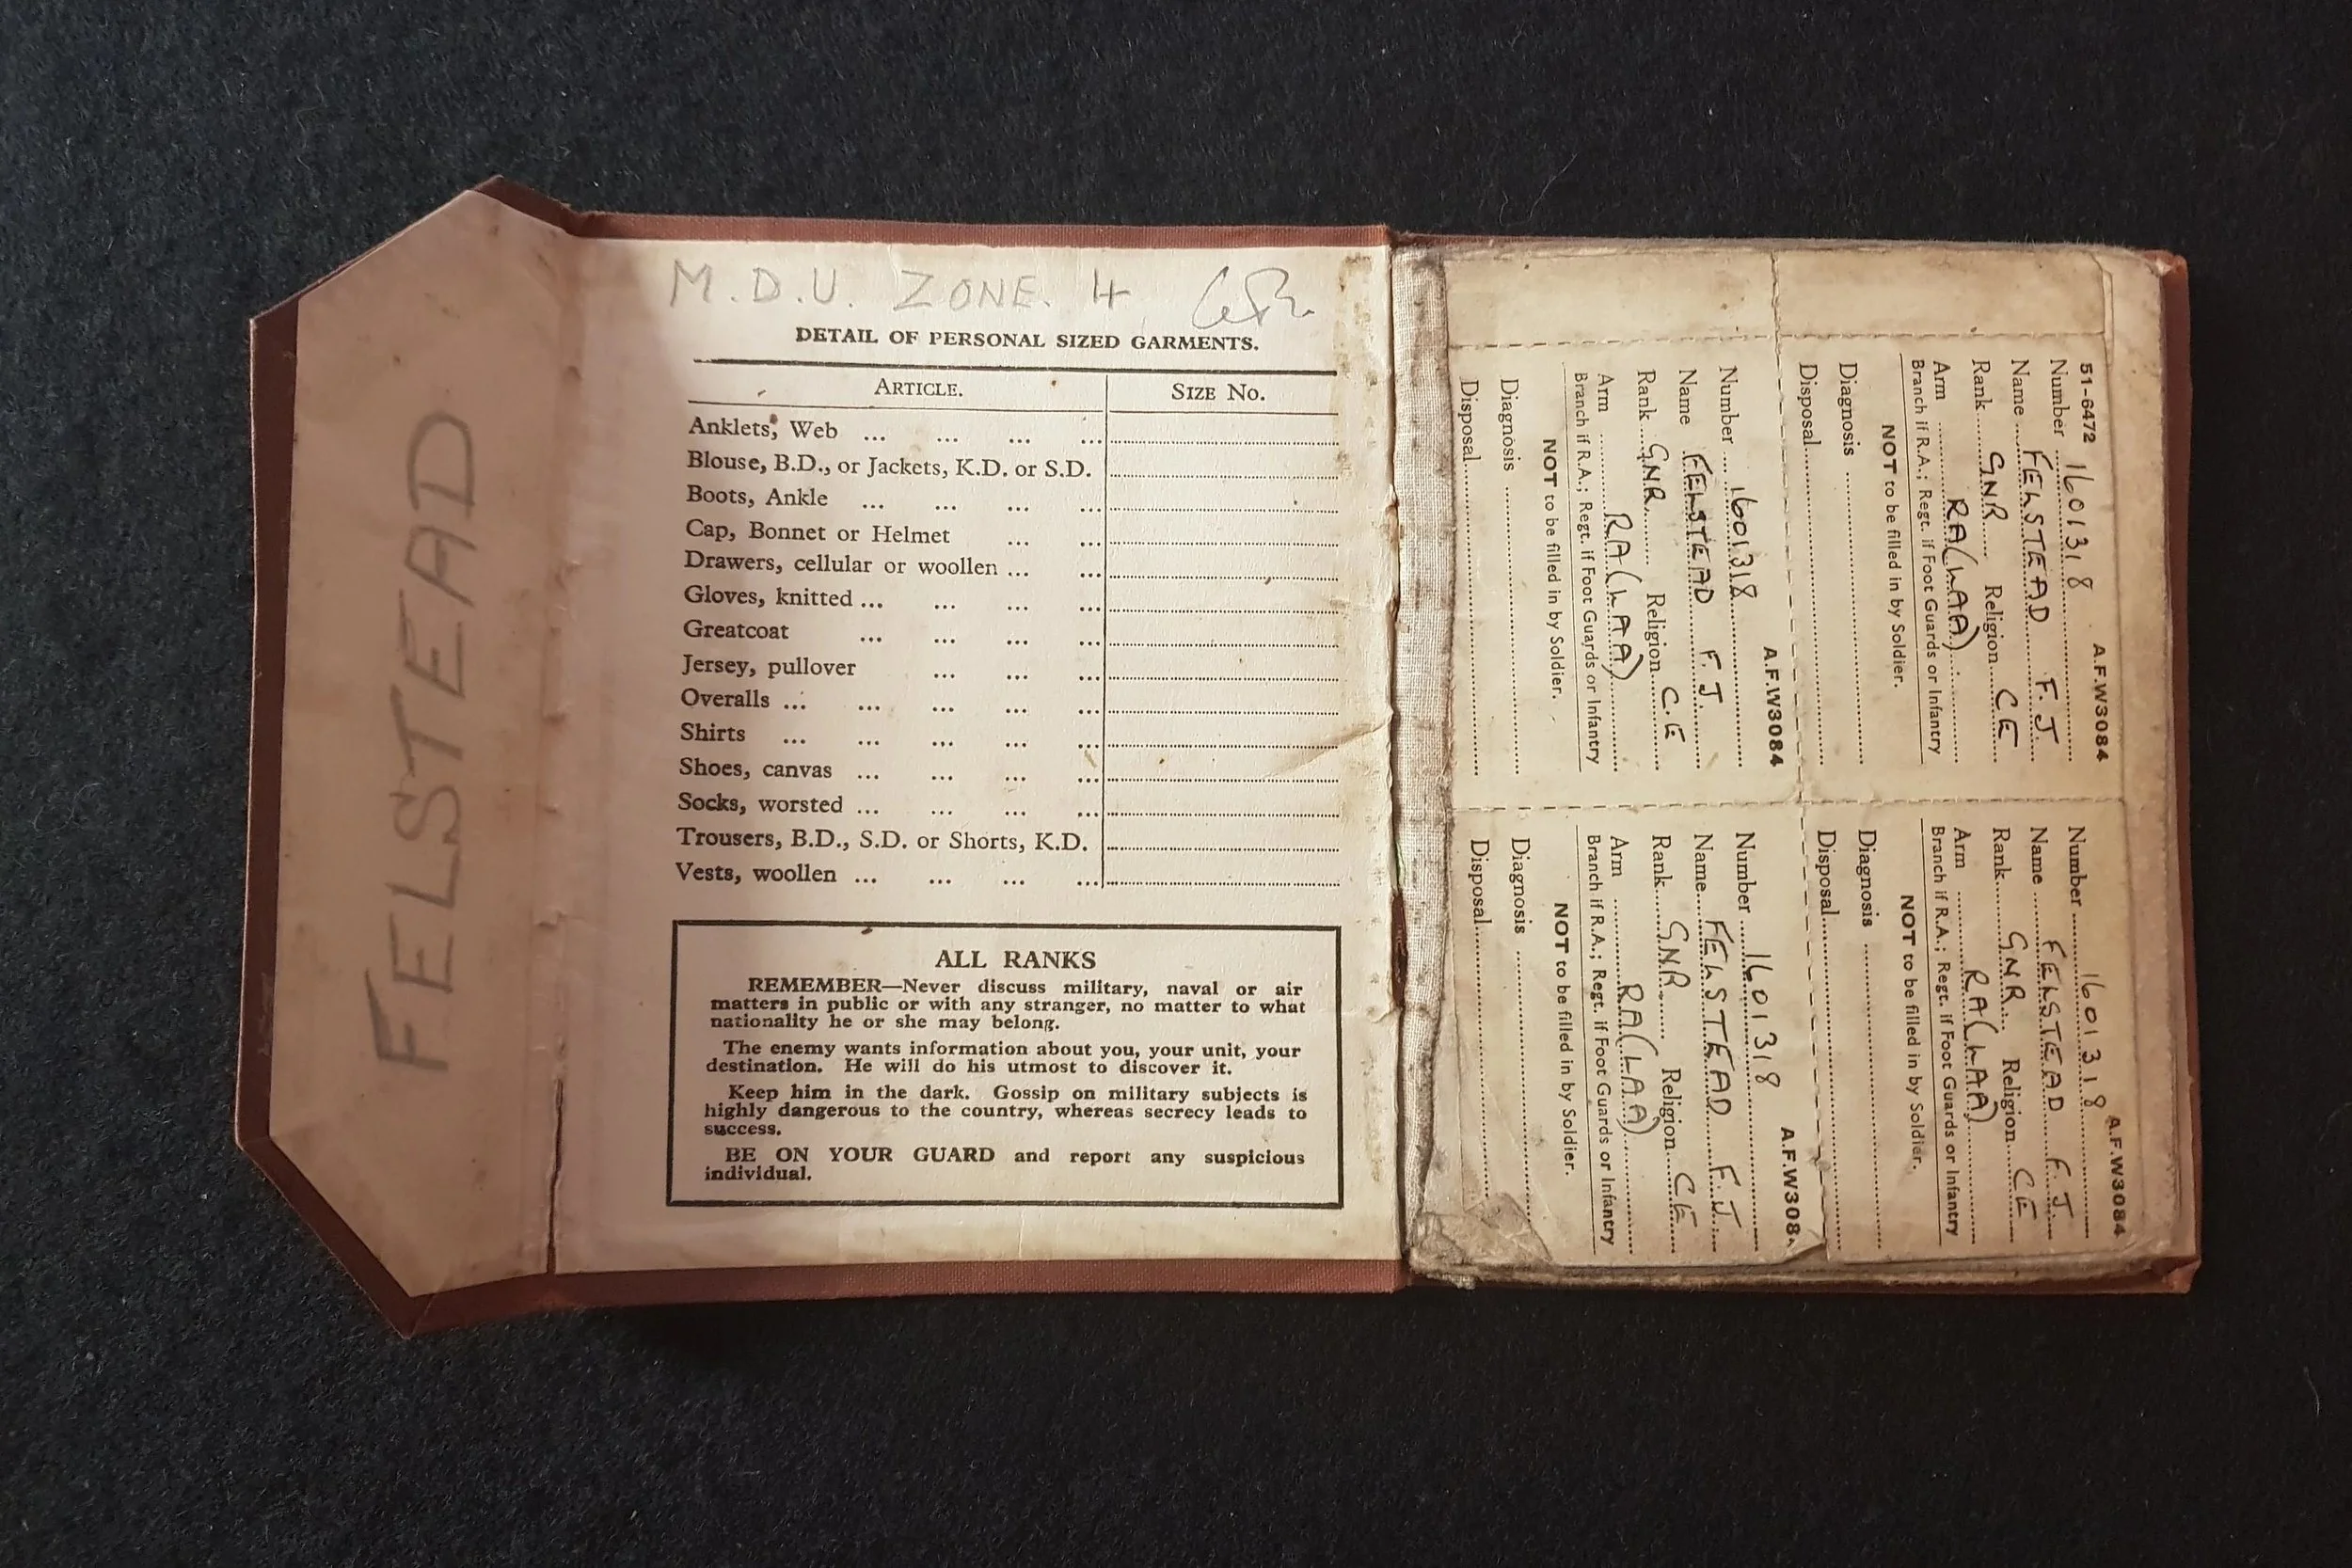 FELSTEAD
M.D.U. ZONE. 4
DETAIL OF PERSONAL SIZED GARMENTS.
ARTICLE. SIZE No.
Anklets, Web ... ... ... ...
Blouse, B.D., or Jackets, K.D. or S.D.
Boots, Ankle ... ... ... ...
Cap, Bonnet or Helmet ... ...
Drawers, cellular or woollen ... ...
Gloves, knitted ... ... ... ...
Greatcoat ... ... ... ...
Jersey, pullover ... ... ...
Overalls ... ... ... ... ...
Shirts ... ... ... ... ...
Shoes, canvas ... ... ... ...
Socks, worsted ... ... ... ...
Trousers, B.D., S.D. or Shorts, K.D.
Vests, woollen ... ... ... ...
ALL RANKS
REMEMBER—Never discuss military, naval or air
matters in public or with any stranger, no matter to what
nationality he or she may belong.
The enemy wants information about you, your unit, your
destination. He will do his utmost to discover it.
Keep him in the dark. Gossip on military subjects is
highly dangerous to the country, whereas secrecy leads to
success.
BE ON YOUR GUARD and report any suspicious
individual.
51-6472 A.F.W3084
Number 1601318
Name FELSTEAD F.J.
Rank GNR Religion CE
Arm RA(LAA)
Branch if R.A.; Regt. if Foot Guards or Infantry
NOT to be filled in by Soldier.
Diagnosis
Disposal
A.F.W3084
Number 1601318
Name FELSTEAD F.J.
Rank GNR. Religion C.E
Arm RA(LAA)
Branch if R.A.; Regt. if Foot Guards or Infantry
NOT to be filled in by Soldier.
Diagnosis
Disposal
A.F.W3084
Number 1601318
Name FELSTEAD F.J.
Rank GNR Religion CE
Arm RA(LAA)
Branch if R.A.; Regt. if Foot Guards or Infantry
NOT to be filled in by Soldier.
Diagnosis
Disposal
A.F.W308
Number 1601318
Name FELSTEAD F.J.
Rank GNR Religion CE
Arm RA(LAA)
Branch if R.A.; Regt. if Foot Guards or Infantry
NOT to be filled in by Soldier.
Diagnosis
Disposal